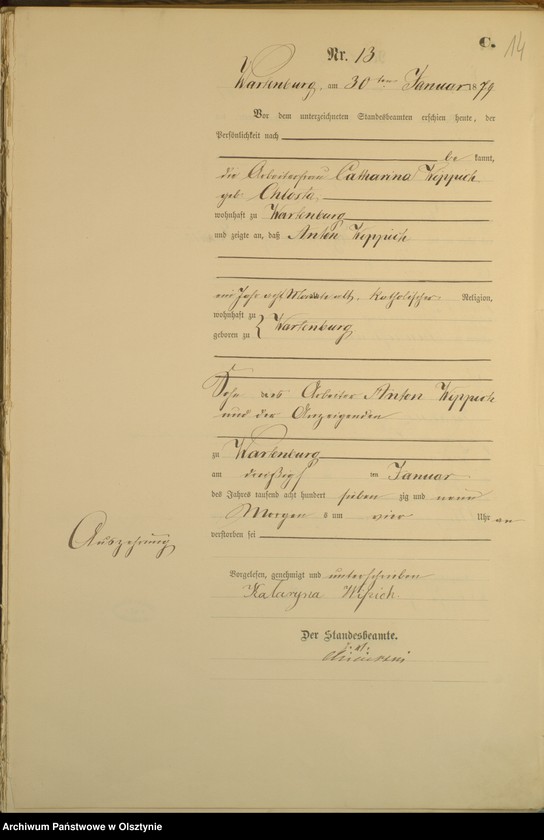 C. 14
Nr. 13
Wartenburg, am 30ten Januar 1879
Vor dem unterzeichneten Standesbeamten erschien heute, der
Persönlichkeit nach
be kannt,
die Arbeiterfrau Catharina Keppich
geb. Chlosta,
wohnhaft zu Wartenburg
und zeigte an, daß Anton Keppich
ein Jahr acht Monate alt, katholischer Religion,
wohnhaft zu
geboren zu Wartenburg
Sohn des Arbeiter Anton Keppich
und der Anzeigenden
zu Wartenburg
am dreißigst ten Januar
des Jahres tausend acht hundert sieben zig und neun
Morgen s um vier Uhr an
Auszehrung
verstorben sei
Vorgelesen, genehmigt und unterschrieben
Kataryna
Der Standesbeamte.
Archiwum Państwowe w Olsztynie